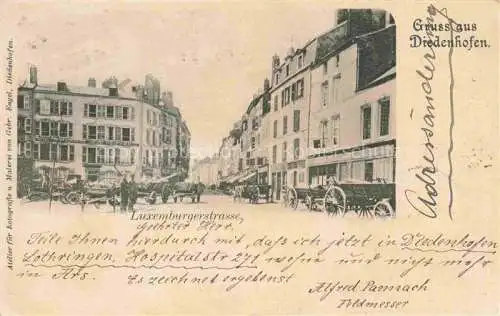 Gruss aus
Diedenhofen.
Adressänderung
Atelier für Fotografie u Malerei von Gebr. Engel, Diedenhofen.
Luxemburgerstrasse.
Geehrter Herr,
Teile Ihnen hierdurch mit, daß ich jetzt in Diedenhofen
Lothringen, Hospitalstr 271 wohne und nicht mehr
in Ars.
Es zeichnet ergebenst
Alfred Pannach
Feldmesser